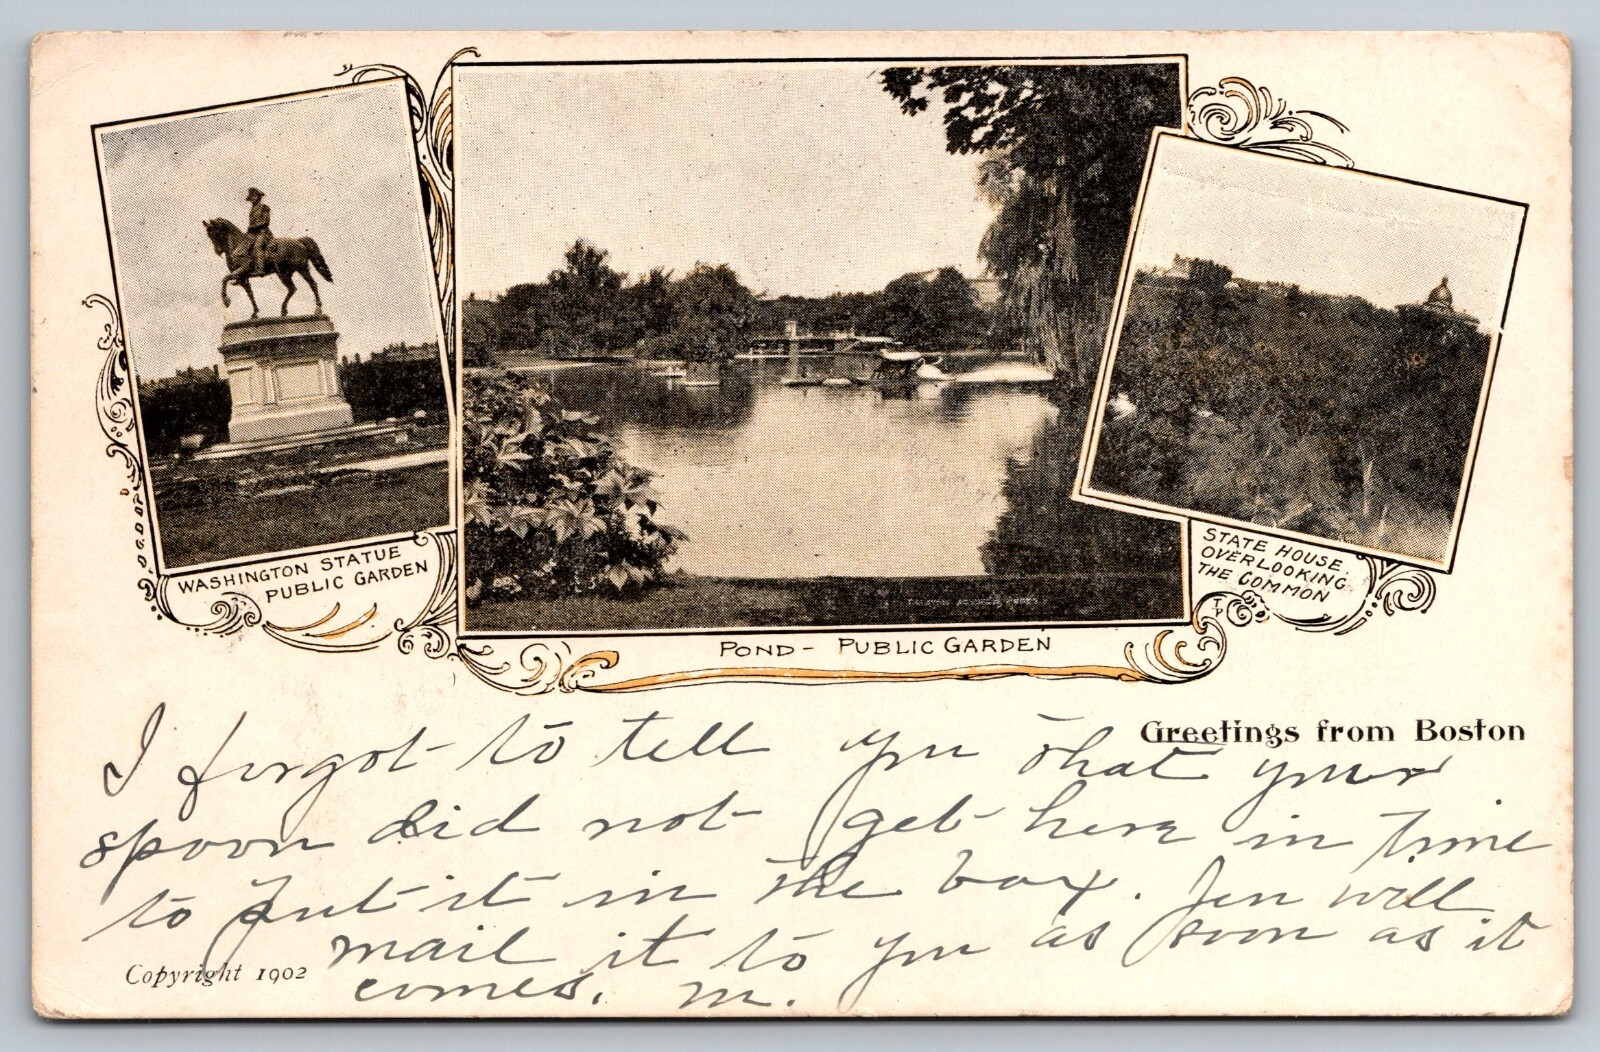 WASHINGTON STATUE
PUBLIC GARDEN
POND - PUBLIC GARDEN
STATE HOUSE.
OVERLOOKING
THE COMMON
Greetings from Boston
I forgot to tell you that your
spoon did not get here in time
to put it in the box. Jen will
mail it to you as soon as it
comes. M.
Copyright 1902